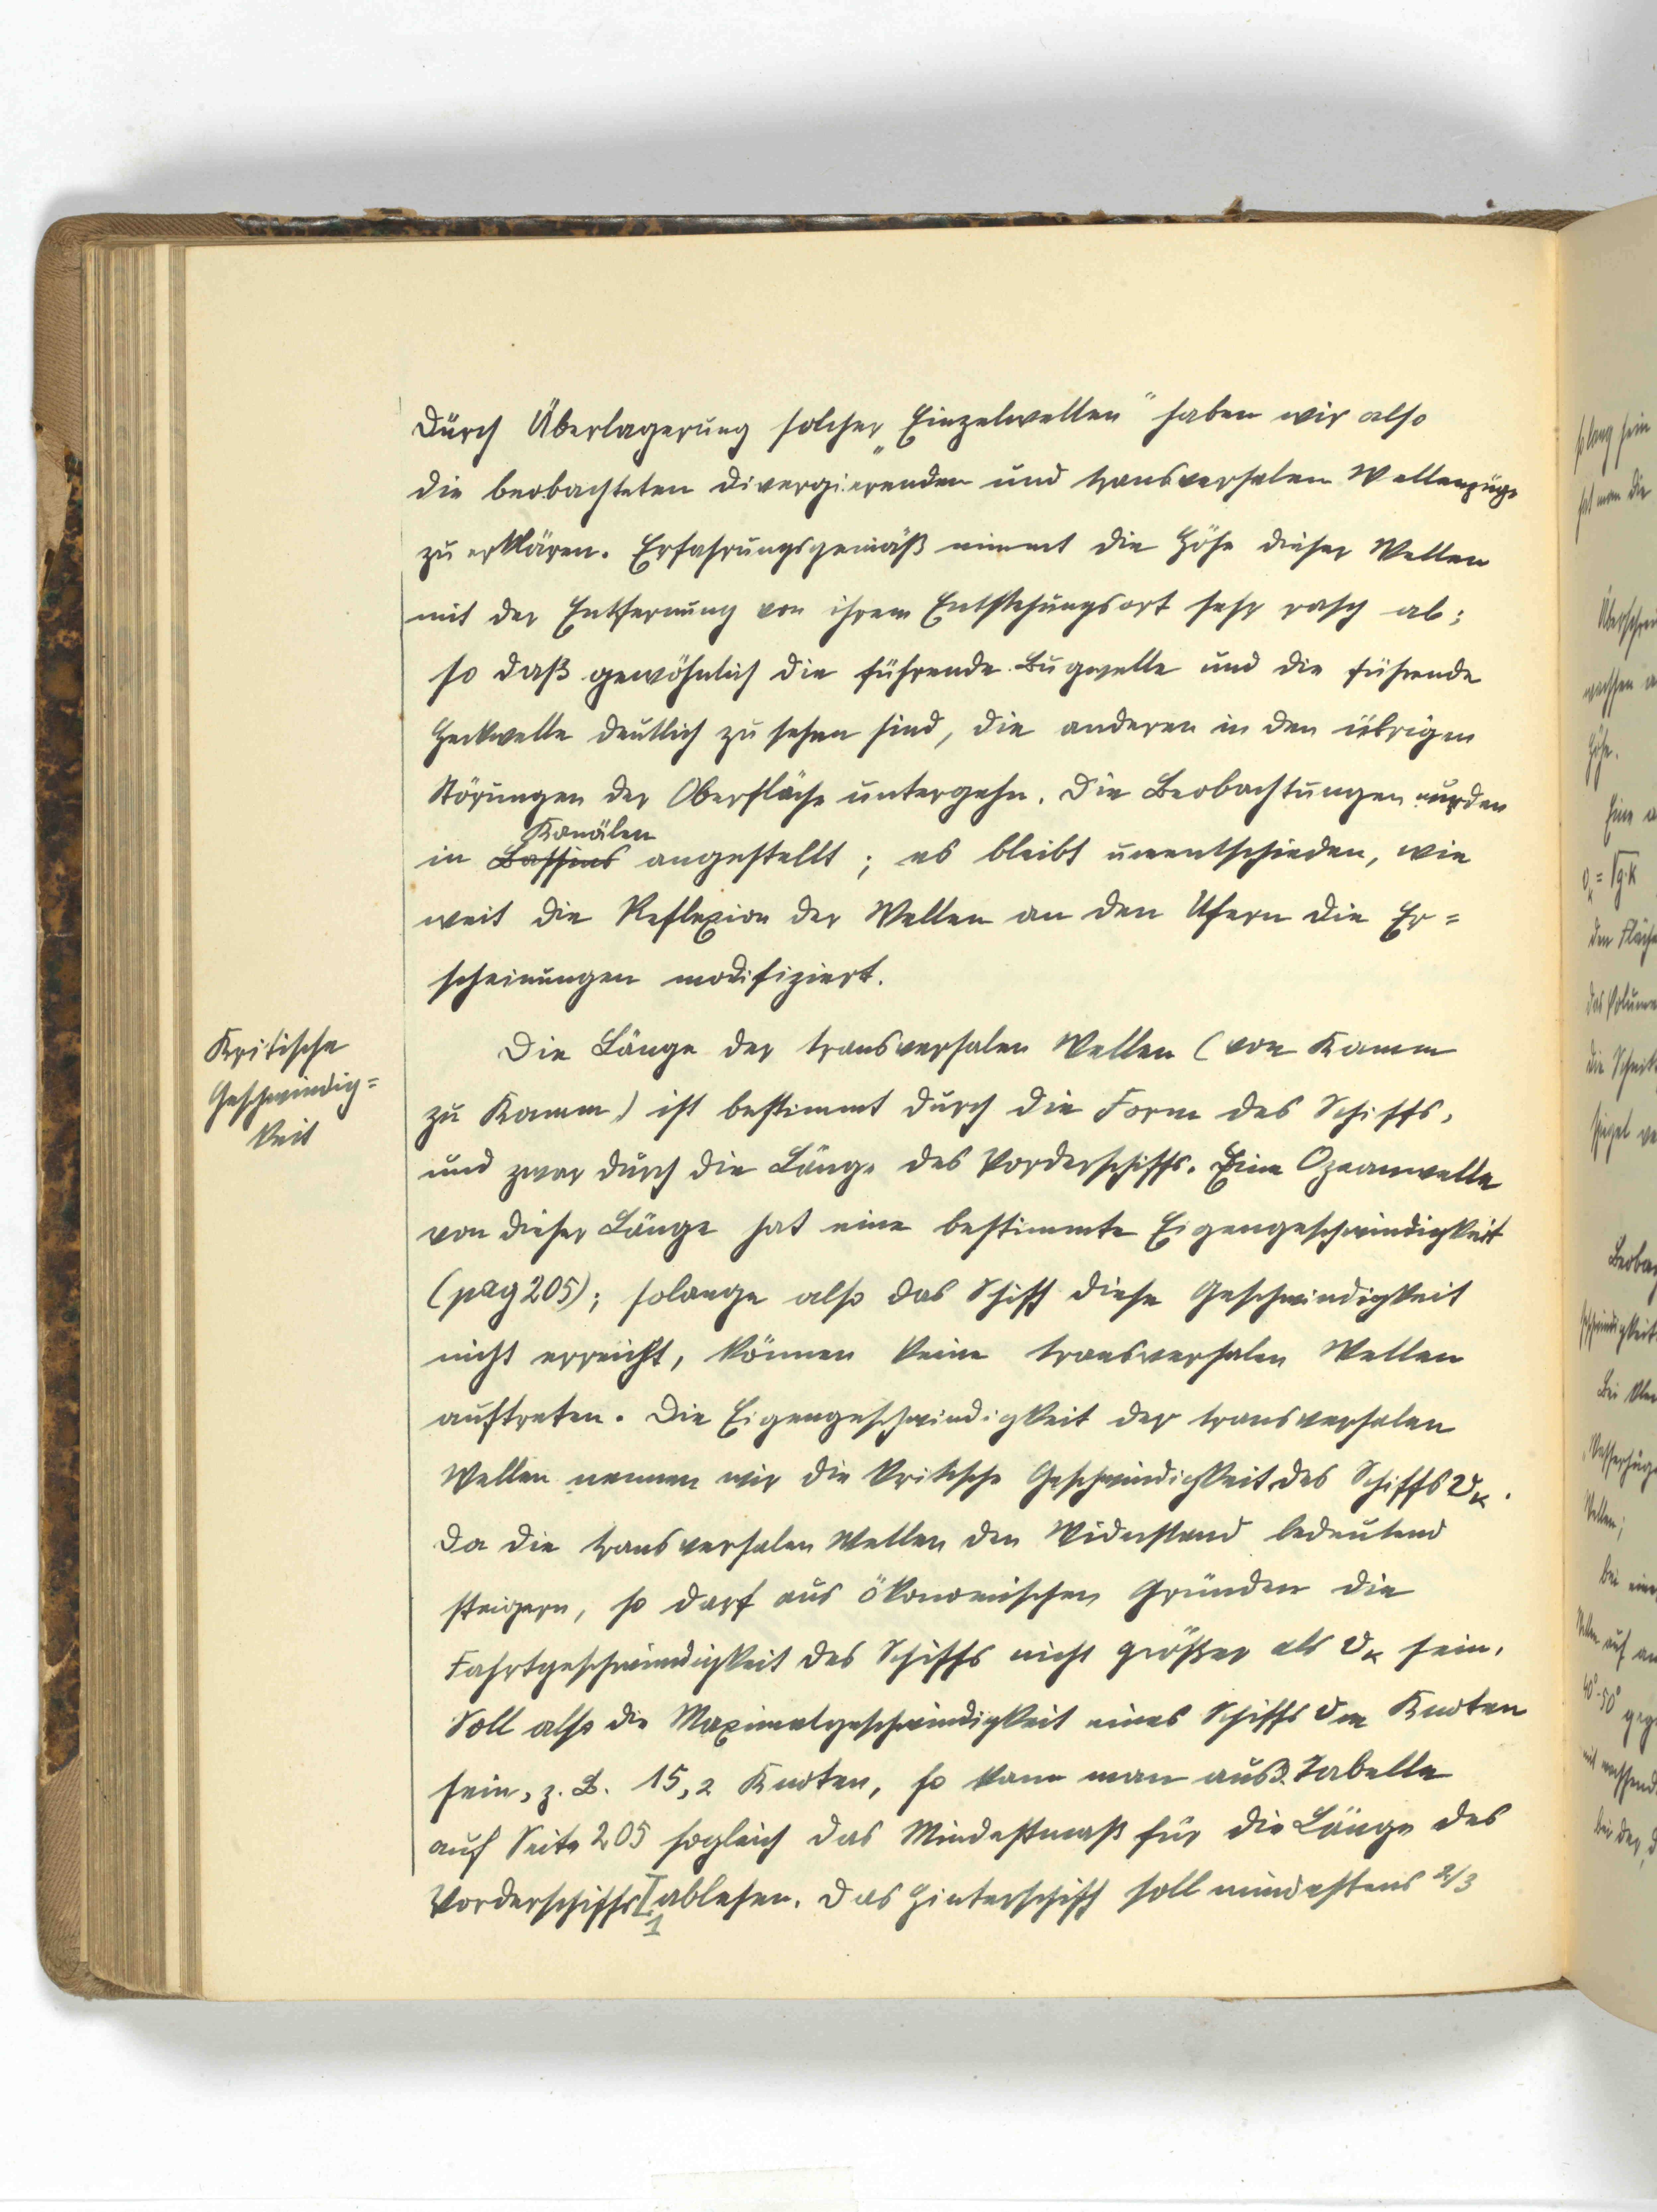 Durch Überlagerung solcher „Einzelwellen" haben wir also
die beobachteten divergierenden und transversalen Wellenzüge
zu erklären. Erfahrungsgemäß nimmt die Höhe dieser Wellen
mit der Entfernung von ihrem Entstehungsort sehr rasch ab;
so daß gewöhnlich die führende Bugwelle und die führende
Heckwelle deutlich zu sehen sind, die anderen in den übrigen
Störungen der Oberfläche untergehn. Die Beobachtungen wurden
Kanälen
in Bassins angestellt; es bleibt unentschieden, wie
weit die Reflexion der Wellen an den Ufern die Er=
scheinungen modifiziert.
Kritische
Geschwindig=
keit
Die Länge der transversalen Wellen (von Kamm
zu Kamm) ist bestimmt durch die Form des Schiffs,
und zwar durch die Länge des Vorderschiffs. Eine Ozeanwelle
von dieser Länge hat eine bestimmte Eigengeschwindigkeit
(pag 205); solange also das Schiff diese Geschwindigkeit
nicht erreicht, können keine transversalen Wellen
auftreten. Die Eigengeschwindigkeit der transversalen
Wellen nennen wir die kritische Geschwindigkeit des Schiffs vκ.
Da die transversalen Wellen den Widerstand bedeutend
steigern, so darf aus ökonomischen Gründen die
Fahrtgeschwindigkeit des Schiffs nicht größer als vκ sein.
Soll also die Maximalgeschwindigkeit eines Schiffs vm Knoten
sein, z. B. 15,2 Knoten, so kann man aus d. Tabelle
auf Seite 205 sogleich das Mindestmaß für die Länge des
Vorderschiffs I ablesen. Das Hinterschiff soll mindestens 2/3
1
so lang sein
hat man die
Höhe.
Eine
vκ = √g·k
den Fläche